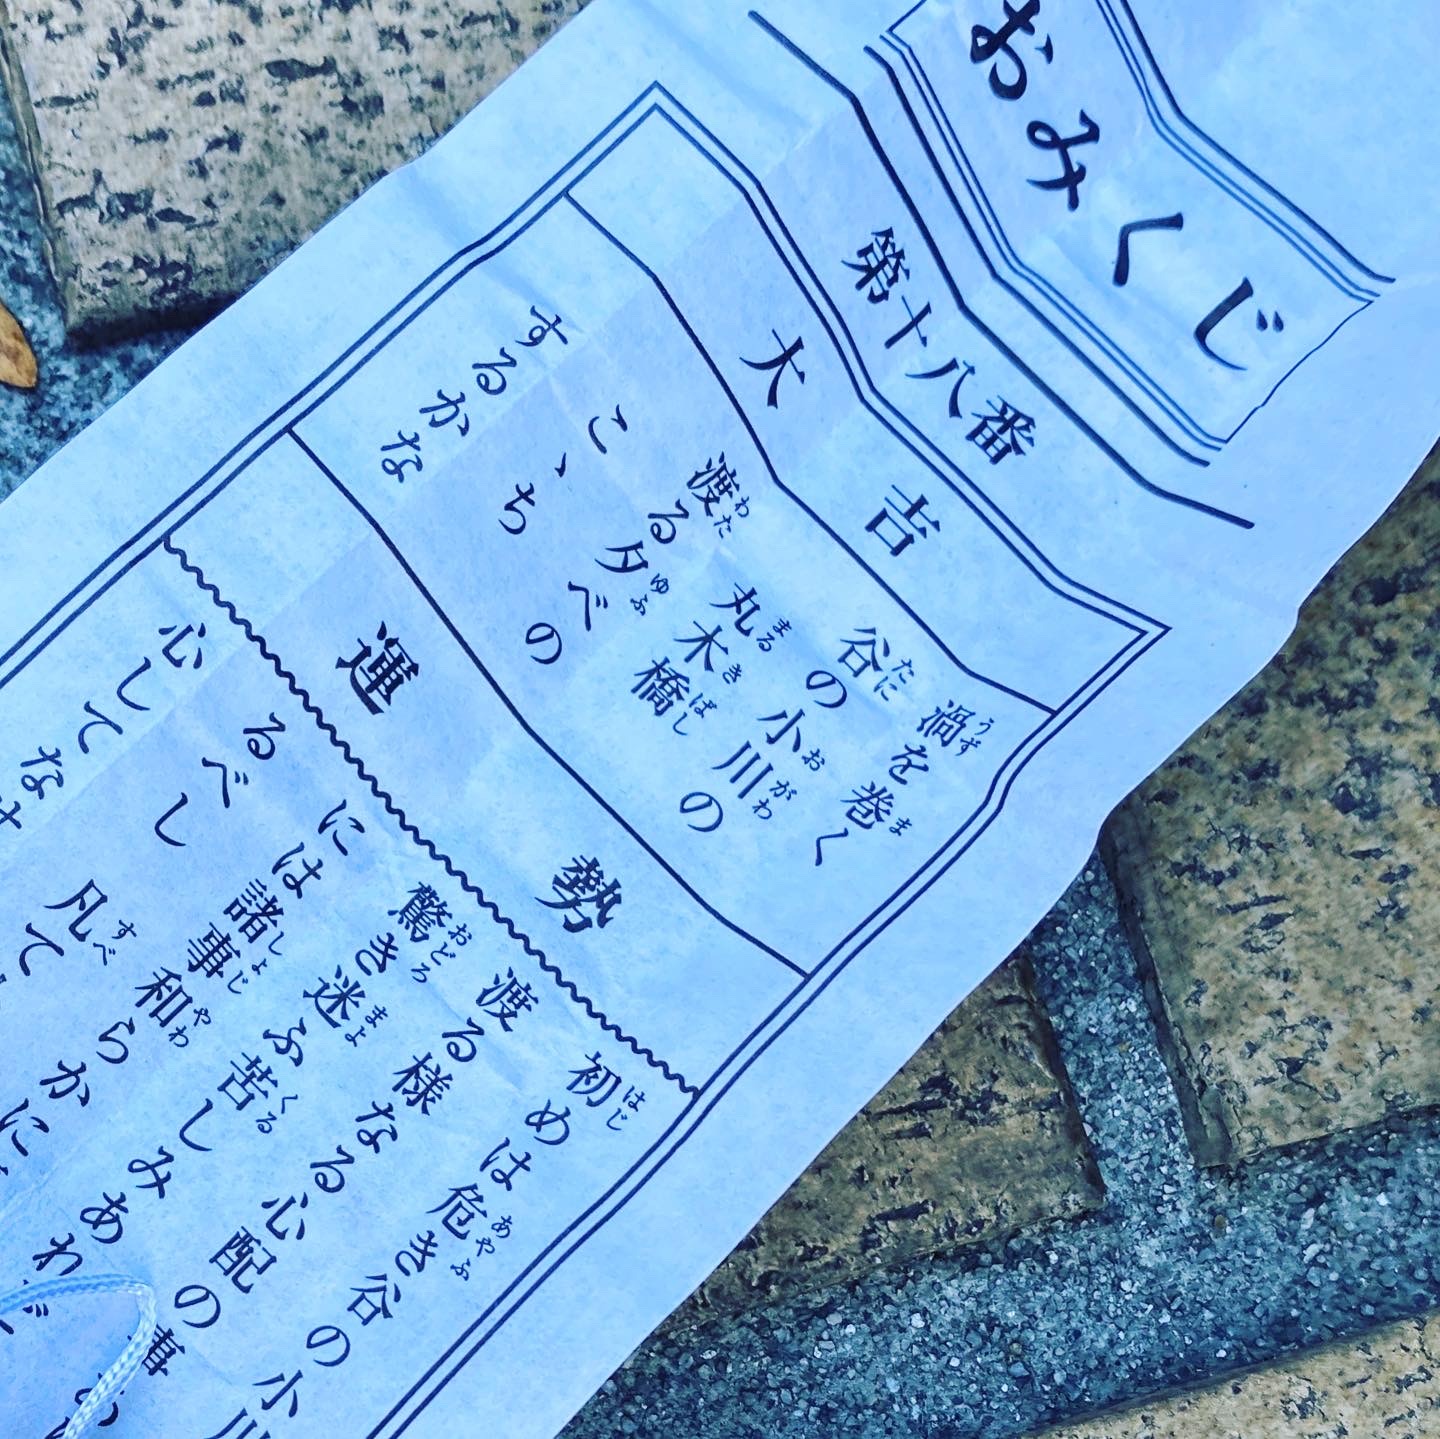 おみくじ
第十八番
大吉
渦を巻く
谷の小川の
丸木橋
渡る夕べの
こゝち
するかな
運勢
初めは危き谷の小川
渡る様なる心配の事あ
驚き迷ふ苦しみあれど
には諸事和らかに
るべし 凡て
心してな